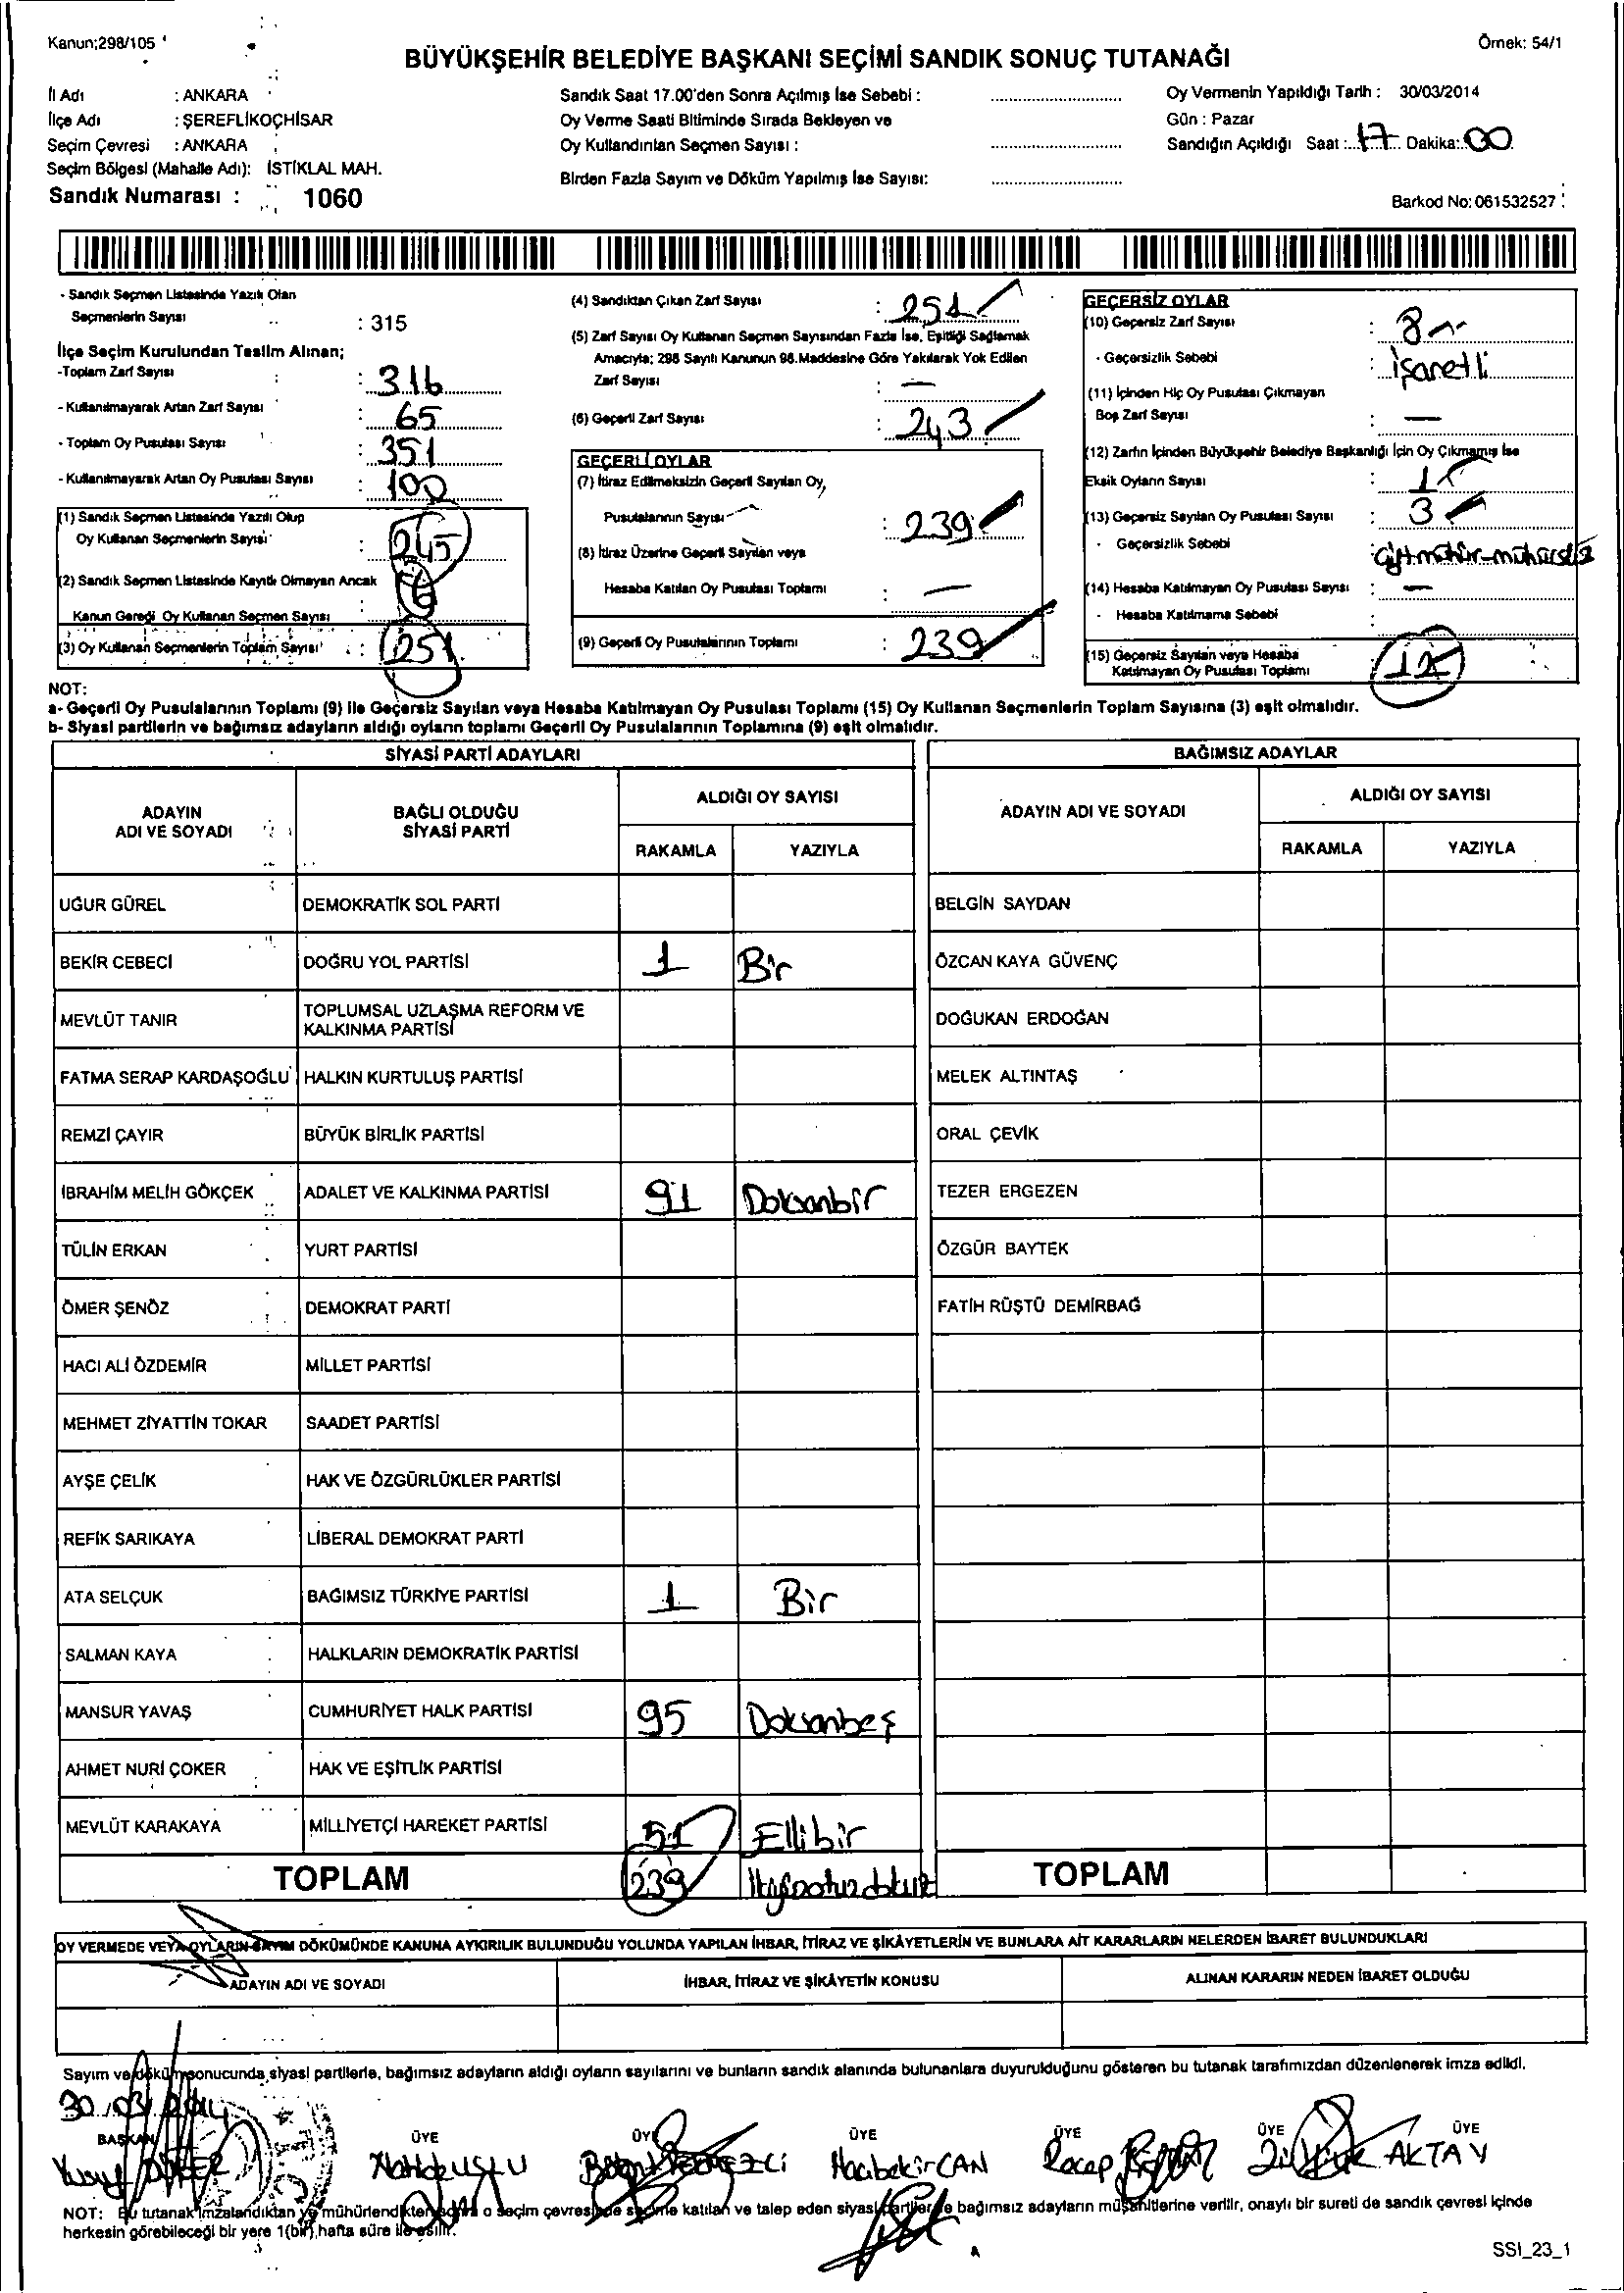 Kanun;298/105
Örnek: 54/1
BÜYÜKŞEHİR BELEDİYE BAŞKANI SEÇİMİ SANDIK SONUÇ TUTANAĞI
İl Adı : ANKARA
İlçe Adı : ŞEREFLİKOÇHİSAR
Seçim Çevresi : ANKARA
Seçim Bölgesi (Mahalle Adı): İSTİKLAL MAH.
Sandık Numarası : 1060
Sandık Saat 17.00'den Sonra Açılmış İse Sebebi :
Oy Verme Saati Bitiminde Sırada Bekleyen ve
Oy Kullandırılan Seçmen Sayısı :
Birden Fazla Sayım ve Döküm Yapılmış İse Sayısı:
Oy Vermenin Yapıldığı Tarih : 30/03/2014
Gün : Pazar
Sandığın Açıldığı Saat : 17 Dakika: 00
Barkod No: 061532527
- Sandık Seçmen Listesinde Yazılı Olan
Seçmenlerin Sayısı : 315
İlçe Seçim Kurulundan Teslim Alınan;
-Toplam Zarf Sayısı : 316
- Kullanılmayarak Artan Zarf Sayısı : 65
- Toplam Oy Pusulası Sayısı : 351
- Kullanılmayarak Artan Oy Pusulası Sayısı : 100
(1) Sandık Seçmen Listesinde Yazılı Olup
Oy Kullanan Seçmenlerin Sayısı : 245
(2) Sandık Seçmen Listesinde Kayıtlı Olmayan Ancak
Kanun Gereği Oy Kullanan Seçmen Sayısı : 6
(3) Oy Kullanan Seçmenlerin Toplam Sayısı : 251
(4) Sandıktan Çıkan Zarf Sayısı : 251
(5) Zarf Sayısı Oy Kullanan Seçmen Sayısından Fazla İse, Eşitliği Sağlamak
Amacıyla; 298 Sayılı Kanunun 98.Maddesine Göre Yakılarak Yok Edilen
Zarf Sayısı : —
(6) Geçerli Zarf Sayısı : 243
GEÇERLİ OYLAR
(7) İtiraz Edilmeksizin Geçerli Sayılan Oy,
Pusulalarının Sayısı : 239
(8) İtiraz Üzerine Geçerli Sayılan veya
Hesaba Katılan Oy Pusulası Toplamı : —
(9) Geçerli Oy Pusulalarının Toplamı : 239
GEÇERSİZ OYLAR
(10) Geçersiz Zarf Sayısı : 8
- Geçersizlik Sebebi : İşaretli
(11) İçinden Hiç Oy Pusulası Çıkmayan
Boş Zarf Sayısı : —
(12) Zarfın İçinden Büyükşehir Belediye Başkanlığı İçin Oy Çıkmamış İse
Eksik Oyların Sayısı : 1
(13) Geçersiz Sayılan Oy Pusulası Sayısı : 3
- Geçersizlik Sebebi : Çift mühür-mühürsüz
(14) Hesaba Katılmayan Oy Pusulası Sayısı : —
- Hesaba Katılmama Sebebi :
(15) Geçersiz Sayılan veya Hesaba
Katılmayan Oy Pusulası Toplamı : 12
NOT:
a- Geçerli Oy Pusulalarının Toplamı (9) ile Geçersiz Sayılan veya Hesaba Katılmayan Oy Pusulası Toplamı (15) Oy Kullanan Seçmenlerin Toplam Sayısına (3) eşit olmalıdır.
b- Siyasi partilerin ve bağımsız adayların aldığı oyların toplamı Geçerli Oy Pusulalarının Toplamına (9) eşit olmalıdır.
SİYASİ PARTİ ADAYLARI
ADAYIN ADI VE SOYADI BAĞLI OLDUĞU SİYASİ PARTİ ALDIĞI OY SAYISI
RAKAMLA YAZIYLA
UĞUR GÜREL DEMOKRATİK SOL PARTİ
BEKİR CEBECİ DOĞRU YOL PARTİSİ 1 Bir
MEVLÜT TANIR TOPLUMSAL UZLAŞMA REFORM VE
KALKINMA PARTİSİ
FATMA SERAP KARDAŞOĞLU HALKIN KURTULUŞ PARTİSİ
REMZİ ÇAYIR BÜYÜK BİRLİK PARTİSİ
İBRAHİM MELİH GÖKÇEK ADALET VE KALKINMA PARTİSİ 91 Doksanbir
TÜLİN ERKAN YURT PARTİSİ
ÖMER ŞENÖZ DEMOKRAT PARTİ
HACI ALİ ÖZDEMİR MİLLET PARTİSİ
MEHMET ZİYATTİN TOKAR SAADET PARTİSİ
AYŞE ÇELİK HAK VE ÖZGÜRLÜKLER PARTİSİ
REFİK SARIKAYA LİBERAL DEMOKRAT PARTİ
ATA SELÇUK BAĞIMSIZ TÜRKİYE PARTİSİ 1 Bir
SALMAN KAYA HALKLARIN DEMOKRATİK PARTİSİ
MANSUR YAVAŞ CUMHURİYET HALK PARTİSİ 95 Doksanbeş
AHMET NURİ ÇOKER HAK VE EŞİTLİK PARTİSİ
MEVLÜT KARAKAYA MİLLİYETÇİ HAREKET PARTİSİ 51 Ellibir
TOPLAM 239
BAĞIMSIZ ADAYLAR
ADAYIN ADI VE SOYADI ALDIĞI OY SAYISI
RAKAMLA YAZIYLA
BELGİN SAYDAN
ÖZCAN KAYA GÜVENÇ
DOĞUKAN ERDOĞAN
MELEK ALTINTAŞ
ORAL ÇEVİK
TEZER ERGEZEN
ÖZGÜR BAYTEK
FATİH RÜŞTÜ DEMİRBAĞ
TOPLAM
OY VERMEDE VEYA OYLARIN SAYIM DÖKÜMÜNDE KANUNA AYKIRILIK BULUNDUĞU YOLUNDA YAPILAN İHBAR, İTİRAZ VE ŞİKÂYETLERİN VE BUNLARA AİT KARARLARIN NELERDEN İBARET BULUNDUKLARI
ADAYIN ADI VE SOYADI İHBAR, İTİRAZ VE ŞİKÂYETİN KONUSU ALINAN KARARIN NEDEN İBARET OLDUĞU
Sayım ve döküm sonucunda siyasi partilerle, bağımsız adayların aldığı oyların sayılarını ve bunların sandık alanında bulunanlara duyurulduğunu gösteren bu tutanak tarafımızdan düzenlenerek imza edildi.
30/03/2014
BAŞKAN ÜYE ÜYE ÜYE ÜYE ÜYE ÜYE
Yusuf Hatice USLU Hacıbekir CAN Recep AKTAY
NOT: Bu tutanak imzalandıktan ve mühürlendikten sonra o seçim çevresinde seçime katılan ve talep eden siyasi partilerle bağımsız adayların müşahitlerine verilir, onaylı bir sureti de sandık çevresi içinde
herkesin görebileceği bir yere 1(bir) hafta süre ile asılır.
SSI_23_1